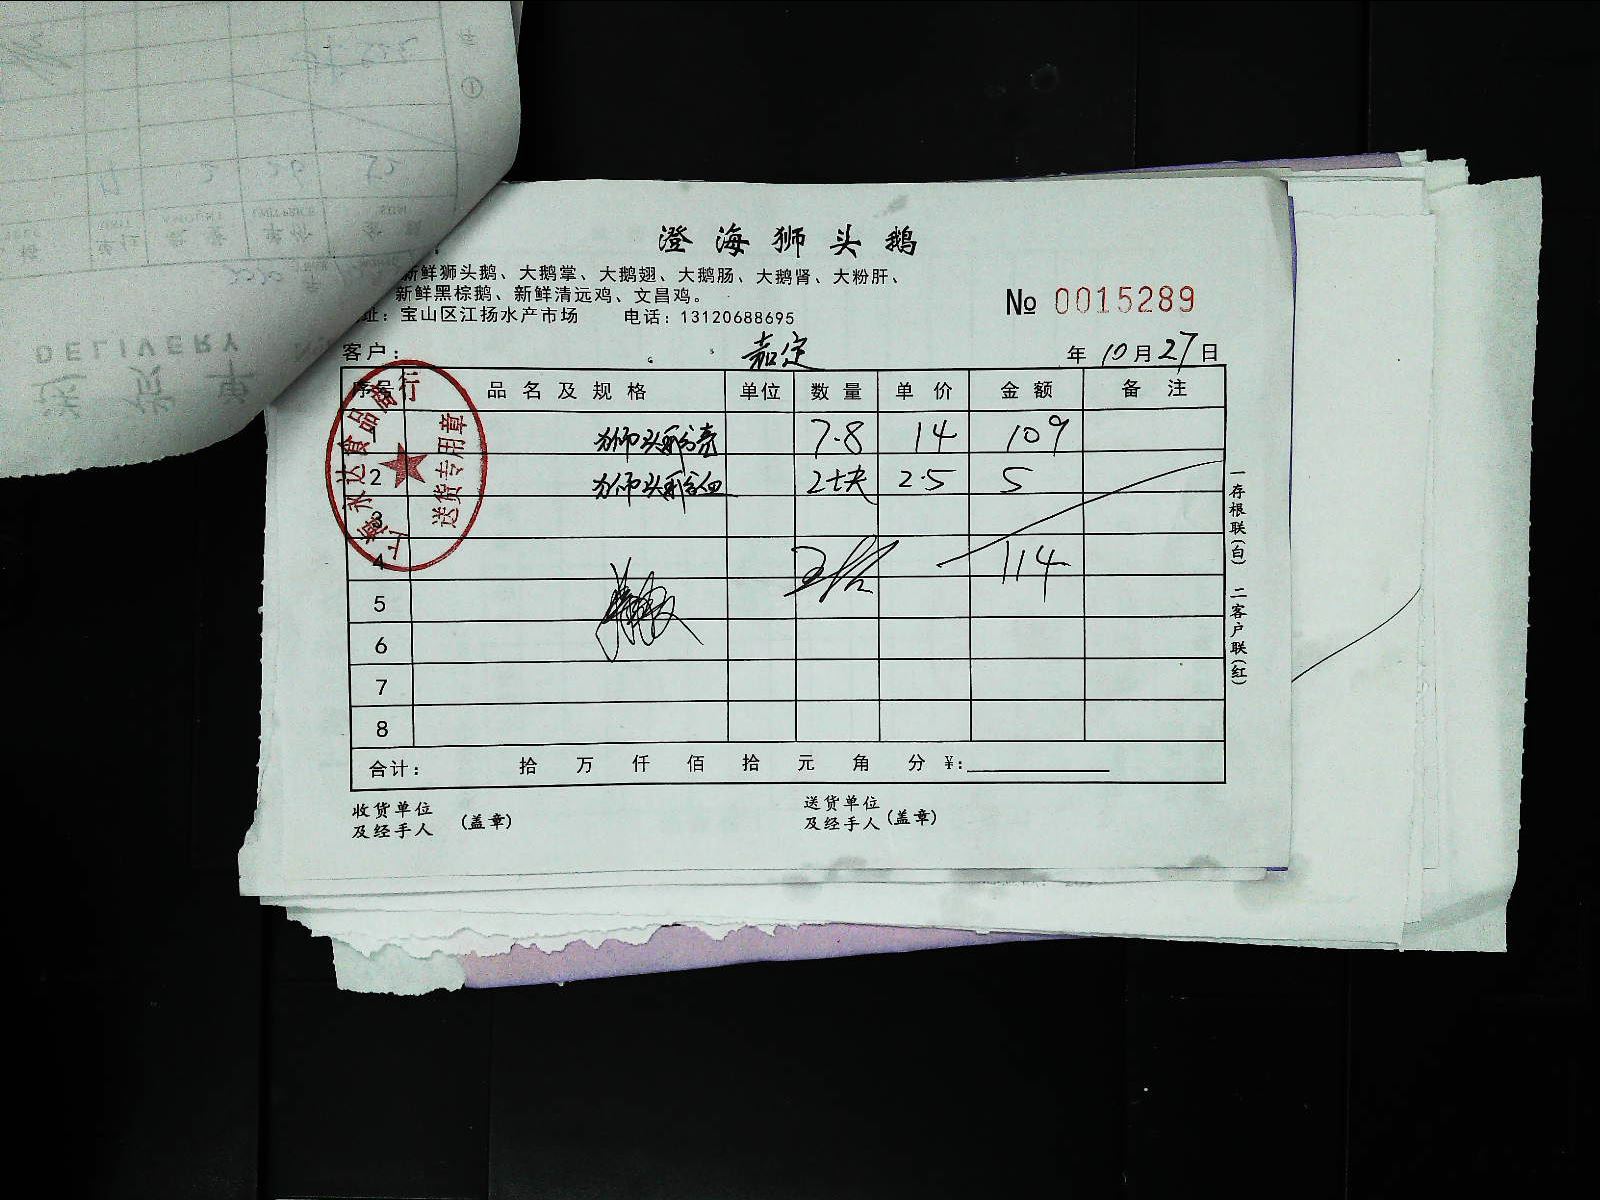 澄海狮头鹅
新鲜狮头鹅、大鹅掌、大鹅翅、大鹅肠、大鹅肾、大粉肝、
新鲜黑棕鹅、新鲜清远鸡、文昌鸡。
址：宝山区江扬水产市场 电话：13120688695
№ 0015289
客户： 嘉定 年 10 月 27 日
序号 品名及规格 单位 数量 单价 金额 备注
1 狮头鹅壳 7.8 14 109
2 狮头鹅血 2块 2.5 5
3
4 114
5
6
7
8
合计： 拾 万 仟 佰 拾 元 角 分 ¥:
收货单位 及经手人 (盖章)
送货单位 及经手人 (盖章)
一存根联(白) 二客户联(红)
上海永达食品商行
送货专用章
DELIVERY
送货单